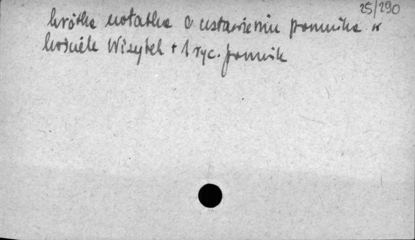 25/290
krótka notatka o ustawieniu pomnika w
kościele Wizytek + 1 ryc. pomnik